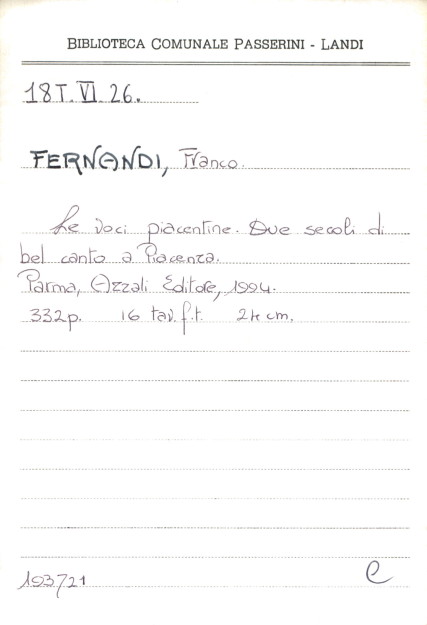 BIBLIOTECA COMUNALE PASSERINI - LANDI
18T. VI 26.
FERNANDI, Franco.
Le voci piacentine. Due secoli di
bel canto a Piacenza.
Parma, Azzali Editore, 1994.
332p. 16 tav. f.t. 24 cm.
193721 C